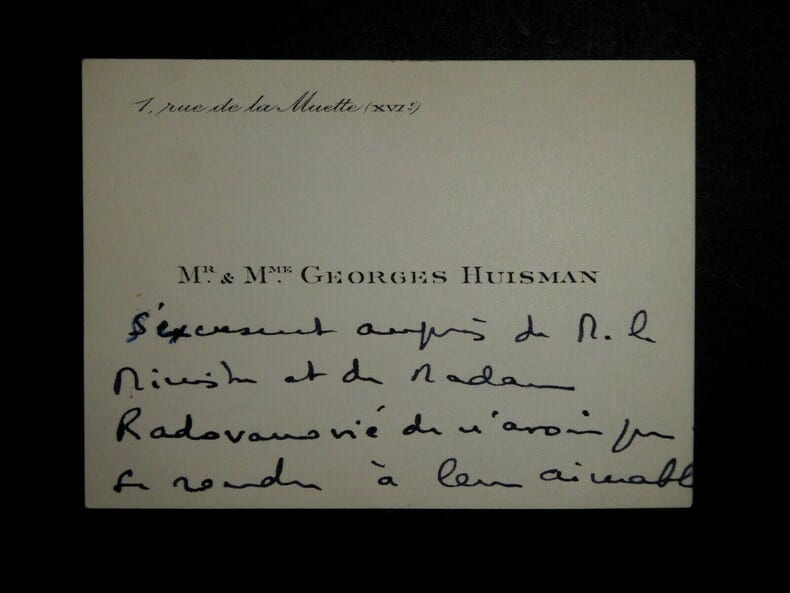 1, rue de la Muette (XVIe)
Mr. & Mme. Georges Huisman
s'excusent auprès de M. le
Ministre et de Madame
Radovanovié de n'avoir pu
se rendre à leur aimable